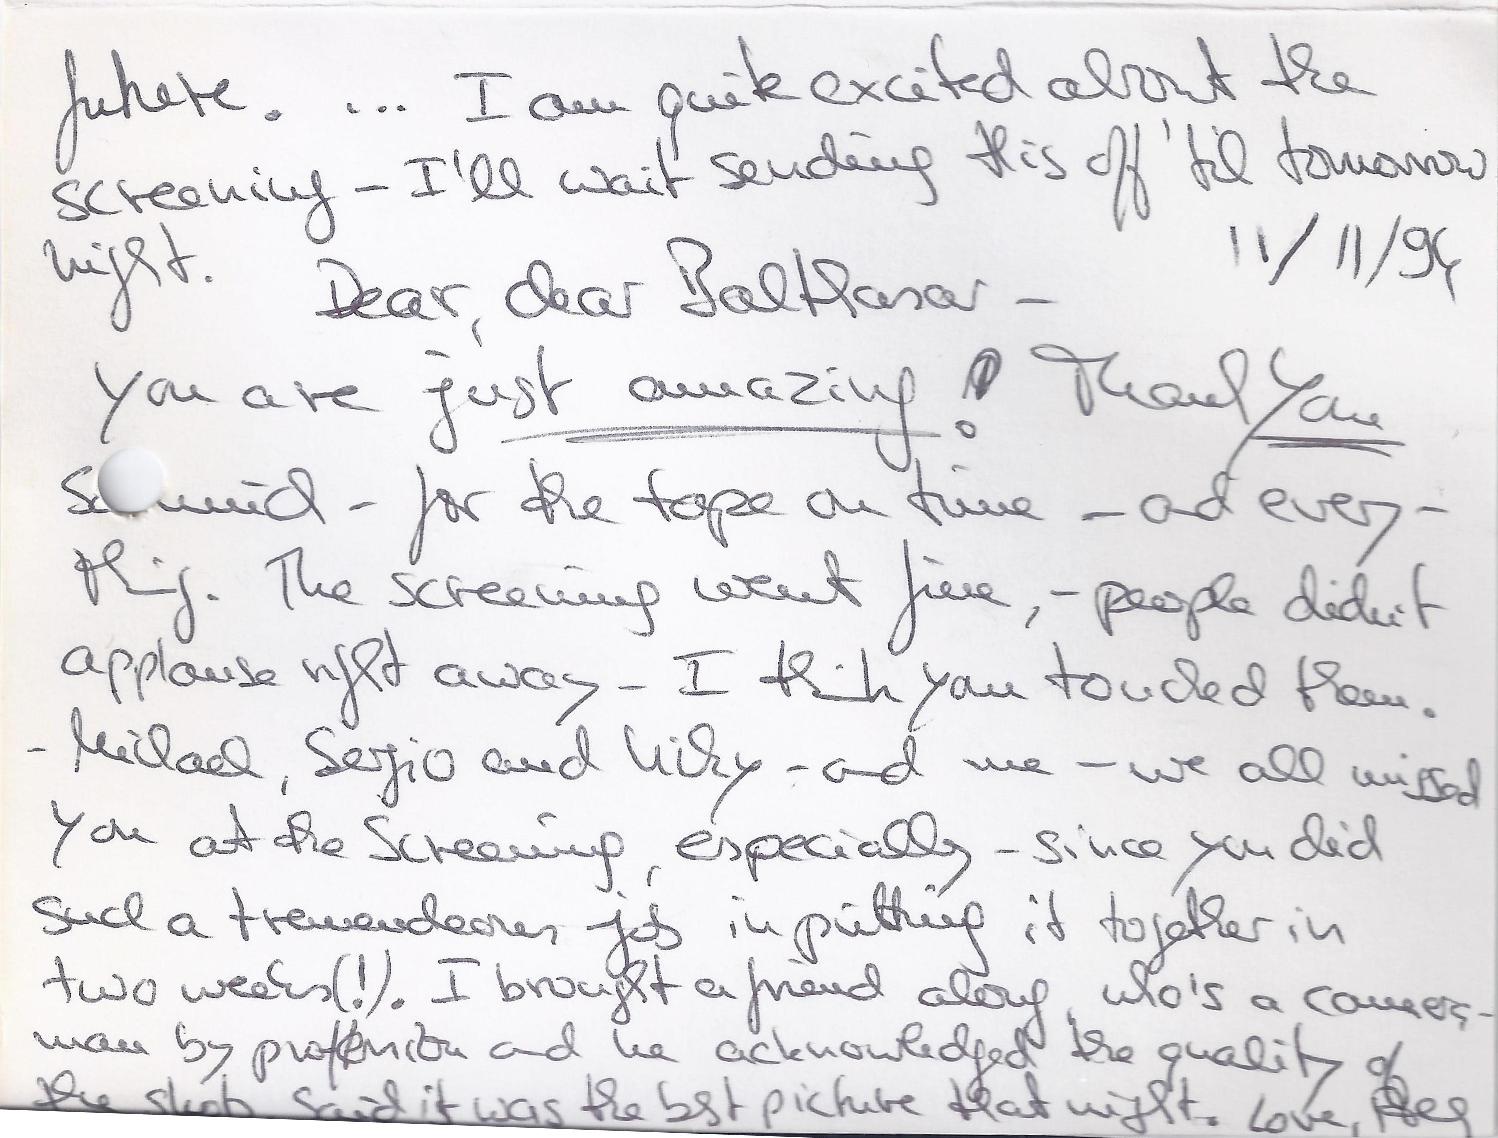 future. ... I am quite excited about the
screening – I'll wait sending this off 'til tomorrow
night. 11/11/94
Dear, dear Balthasar –
You are just amazing! Thank You
– for the tape on time – and every-
thing. The screening went fine, – people didn't
applause right away – I think you touched them.
- Michael, Sergio and Vicky – and me – we all missed
you at the Screening, especially – since you did
such a tremendous job in putting it together in
two weeks(!). I brought a friend along, who's a camera-
man by profession and he acknowledged the quality of
the shots, said it was the best picture that night. Love,